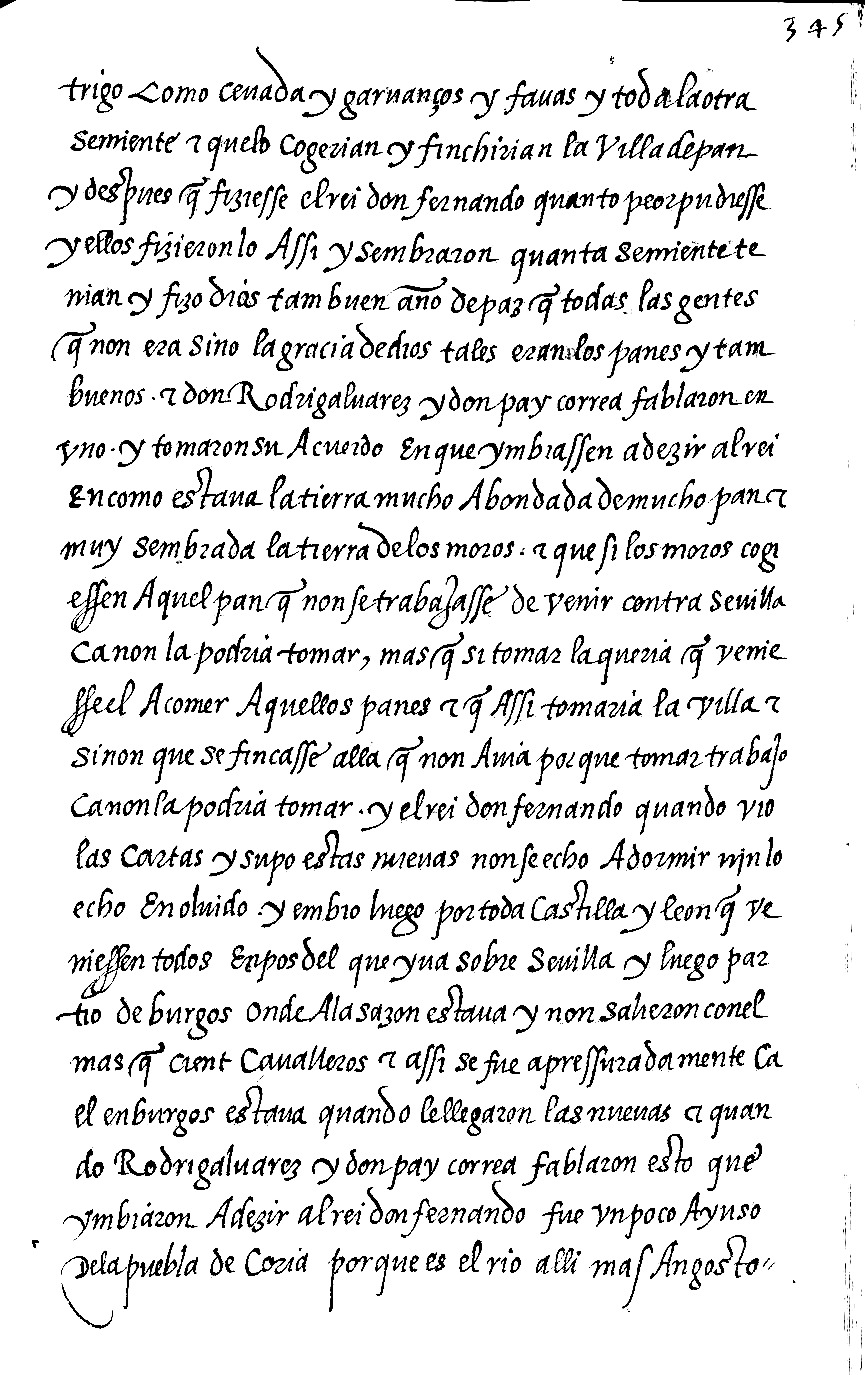 345
trigo Como cevada y garvanços y favas y toda la otra
semiente ⁊ que lo cogerian y finchirian la Villa de pan
y despues q̃ fiziesse el rei don fernando quanto peor pudiesse
y ellos fizieron lo Assi y sembraron quanta semiente te
nian y fizo dios tam buen año de paz q̃ todas las gentes
q̃ non era sino la gracia de dios tales eran los panes y tam
buenos. ⁊ don Rodrigalvarez y don pay correa fablaron en
vno. y tomaron su Acuerdo En que ymbiassen a dezir al rei
En como estava la tierra mucho Abondada de mucho pan ⁊
muy sembrada la tierra de los moros. ⁊ que si los moros cogi
essen Aquel pan q̃ non se trabajasse de venir contra sevilla
Ca non la podria tomar, mas q̃ si tomar la queria q̃ venie
sse el A comer Aquellos panes ⁊ q̃ Assi tomaria la villa ⁊
sinon que se fincasse alla q̃ non Avia por que tomar trabajo
Ca non la podria tomar. y el rei don fernando quando vio
las Cartas y supo estas nuevas non se echo A dormir nin lo
echo En olvido. y embio luego por toda Castilla y leon q̃ ve
niessen todos En pos del que yva sobre Sevilla y luego par
tio de burgos onde A la sazon estava y non salieron con el
mas q̃ cient Cavalleros ⁊ assi se fue apressuradamente Ca
el en burgos estava quando le llegaron las nuevas ⁊ quan
do Rodrigalvarez y don pay correa fablaron esto que
ymbiaron A dezir al rei don fernando fue vn poco Ayuso
De la puebla de Coria por que es el rio alli mas Angosto